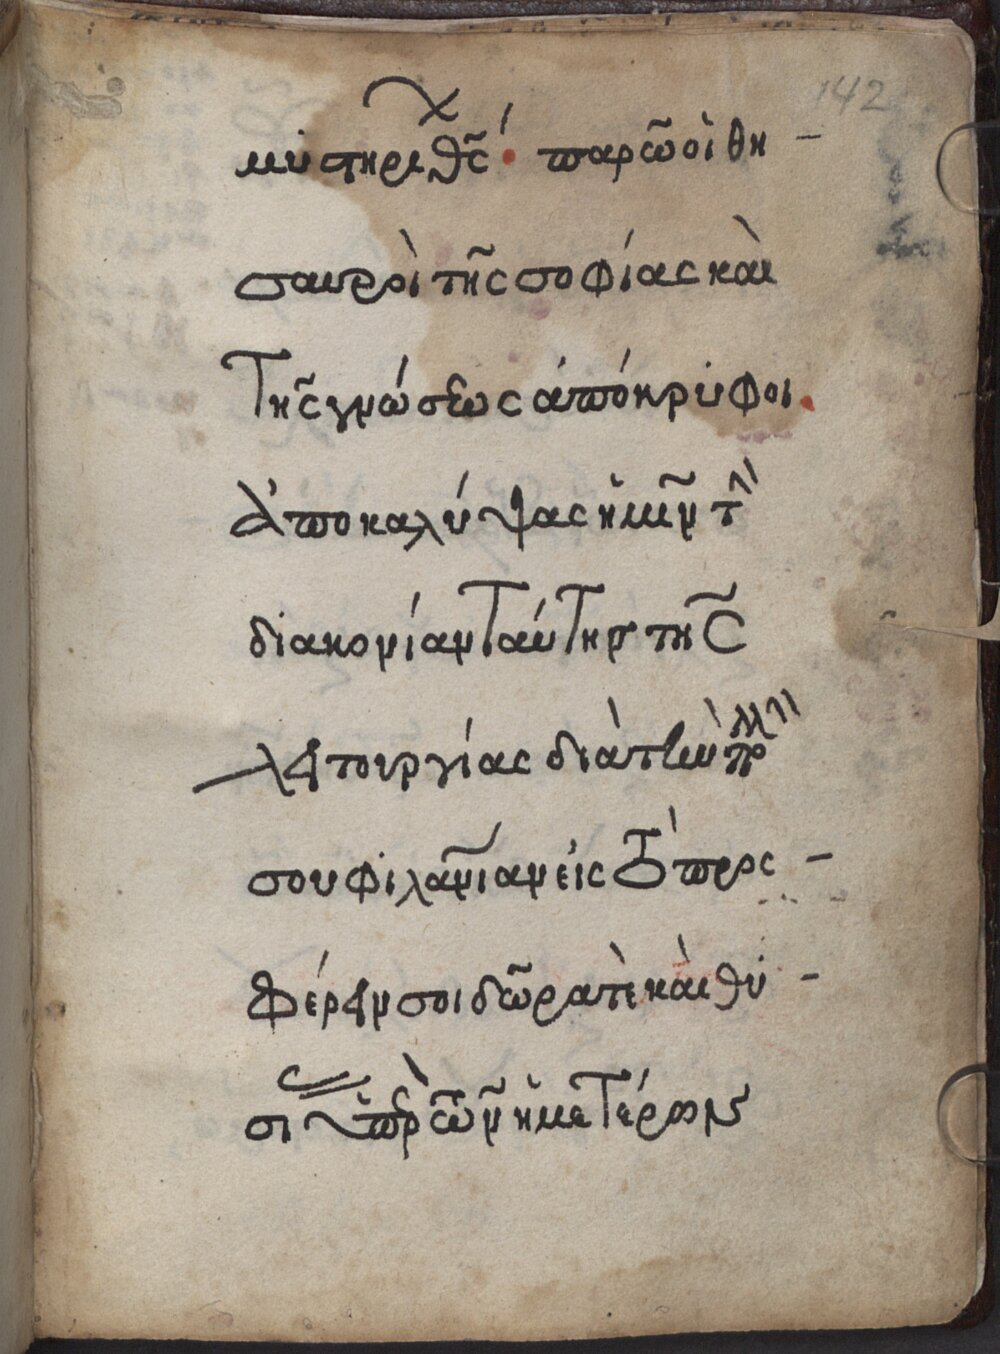 142
μυστηρι θς· παρ ὧ οἱ θη –
σαυροὶ τῆς σοφίας καὶ
τῆς γνώσεως ἀπόκρυφοι.
Ἀποκαλύψας ἡμῖν τ
διακονίαν ταύτην τῆς
λειτουργίας διὰ τὴν πολλὴν
σου φιλανίαν εἰς τὸ προς –
φέρειν σοι δῶρα τὲ καὶ θυ –
σι ὑπὲρ τῶν ἡμετέρων